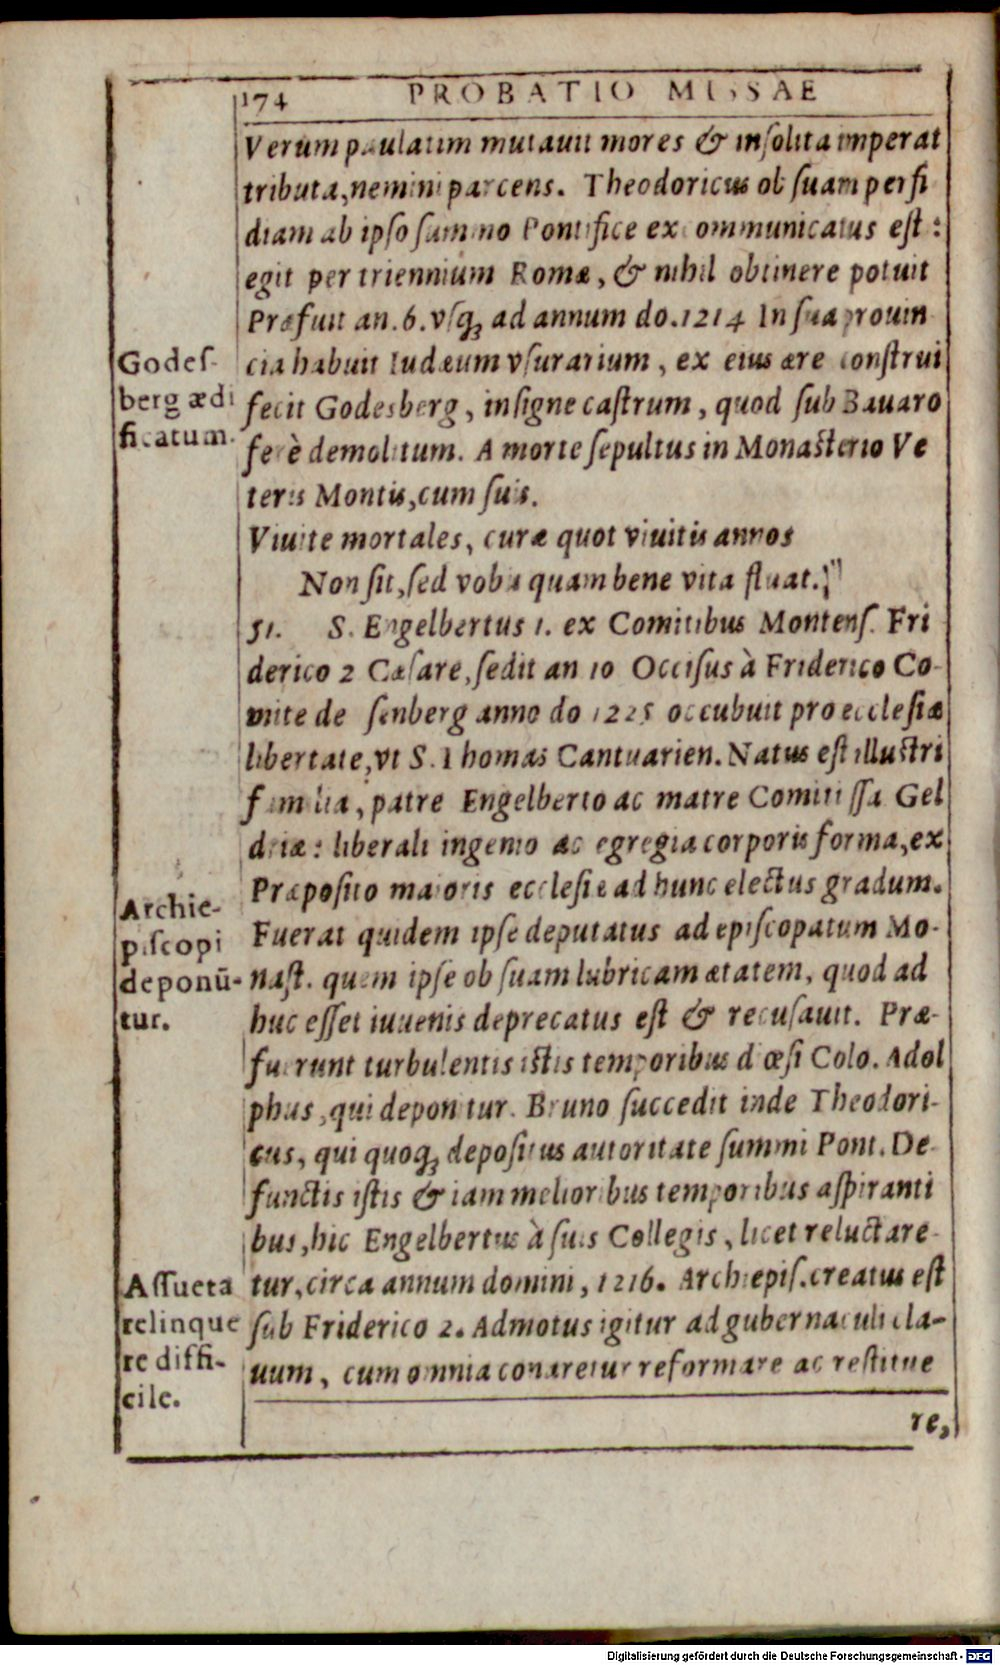 174 PROBATIO MISSAE
Verum paulatim mutauit mores & insolita imperat
tributa, nemini parcens. Theodoricus ob suam perfi
diam ab ipso summo Pontifice excommunicatus est:
egit per triennium Romæ, & nihil obtinere potuit
Præfuit an. 6. vsqꝫ ad annum do. 1214 In sua prouin
cia habuit Iudæum vsurarium, ex eius ære construi
fecit Godesberg, insigne castrum, quod sub Bauaro
ferè demolitum. A morte sepultus in Monasterio Ve
teris Montis, cum suis.
Viuite mortales, curæ quot viuitis annos
Non sit, sed vobis quam bene vita fluat.
51. S. Engelbertus 1. ex Comitibus Montens. Fri
derico 2 Cæsare, sedit an 10 Occisus à Friderico Co-
mite de senberg anno do 1225 occubuit pro ecclesiæ
libertate, vt S. Thomas Cantuarien. Natus est illustri
familia, patre Engelberto ac matre Comitissa Gel
driæ: liberali ingenio ac egregia corporis forma, ex
Præposito maioris ecclesiæ ad hunc electus gradum.
Fuerat quidem ipse deputatus ad episcopatum Mo-
nast. quem ipse ob suam lubricam ætatem, quod ad
huc esset iuuenis deprecatus est & recusauit. Præ-
fuerunt turbulentis istis temporibus diœsi Colo. Adol
phus, qui deponitur. Bruno succedit inde Theodori-
cus, qui quoqꝫ depositus autoritate summi Pont. De-
functis istis & iam melioribus temporibus aspiranti
bus, hic Engelbertus à suis Collegis, licet reluctare-
tur, circa annum domini, 1216. Archiepis. creatus est
sub Friderico 2. Admotus igitur ad gubernaculi cla-
uum, cum omnia conaretur reformare ac restitue
re,
Godes-
berg ædi
ficatum.
Archie-
piscopi
deponū-
tur.
Assueta
relinque
re diffi-
cile.
Digitalisierung gefördert durch die Deutsche Forschungsgemeinschaft - DFG